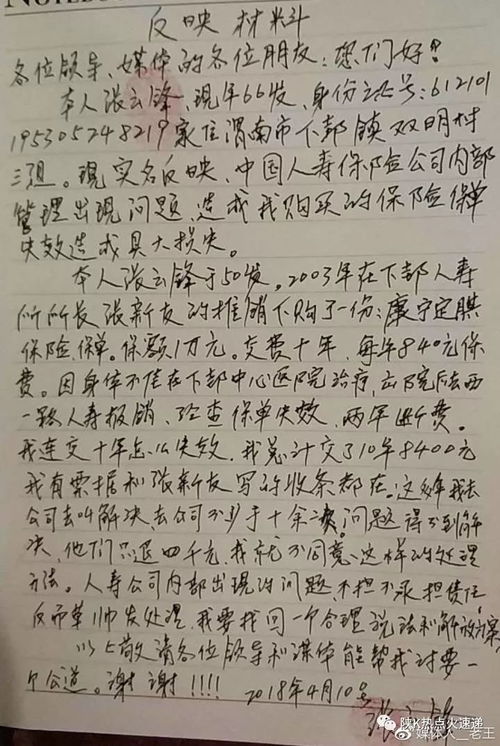 NOTEBOOK
反映材料
各位领导、媒体的各位朋友：您们好？
本人张云锋，现年66岁，身份证号：612101
195305248219家住渭南市下邽镇双明村
三组。现实名反映，中国人寿保险公司内部
管理出现问题，造成我购买的保险保单
失效造成具大损失。
本人张云锋于50岁。2003年在下邽人寿
所所长张新友的推销下购了一份：康宁定期
保险保单。保额1万元。交费十年，每年840元保
费。因身体不佳在下邽中心医院治疗，出院后去西
一路人寿报销，经查保单失效，两年
我连交十年怎么失效，我总计交了10年8400元
我有票据和张新友写的收条都在。这多年我去
公司去叫解决，去公司不少于十余次，问题得不到解
决，他们只退四千元，我就不同意这样的处理
方法。人寿公司内部出现的问题，不担不承担责任，
反而草帅处理，我要找回一个合理说法和解放方案
以上敬请各位领导和媒体能帮我讨要一
个公道。谢谢！！！！ 2018年4月10号
陕K热点火速递
媒体人__老王